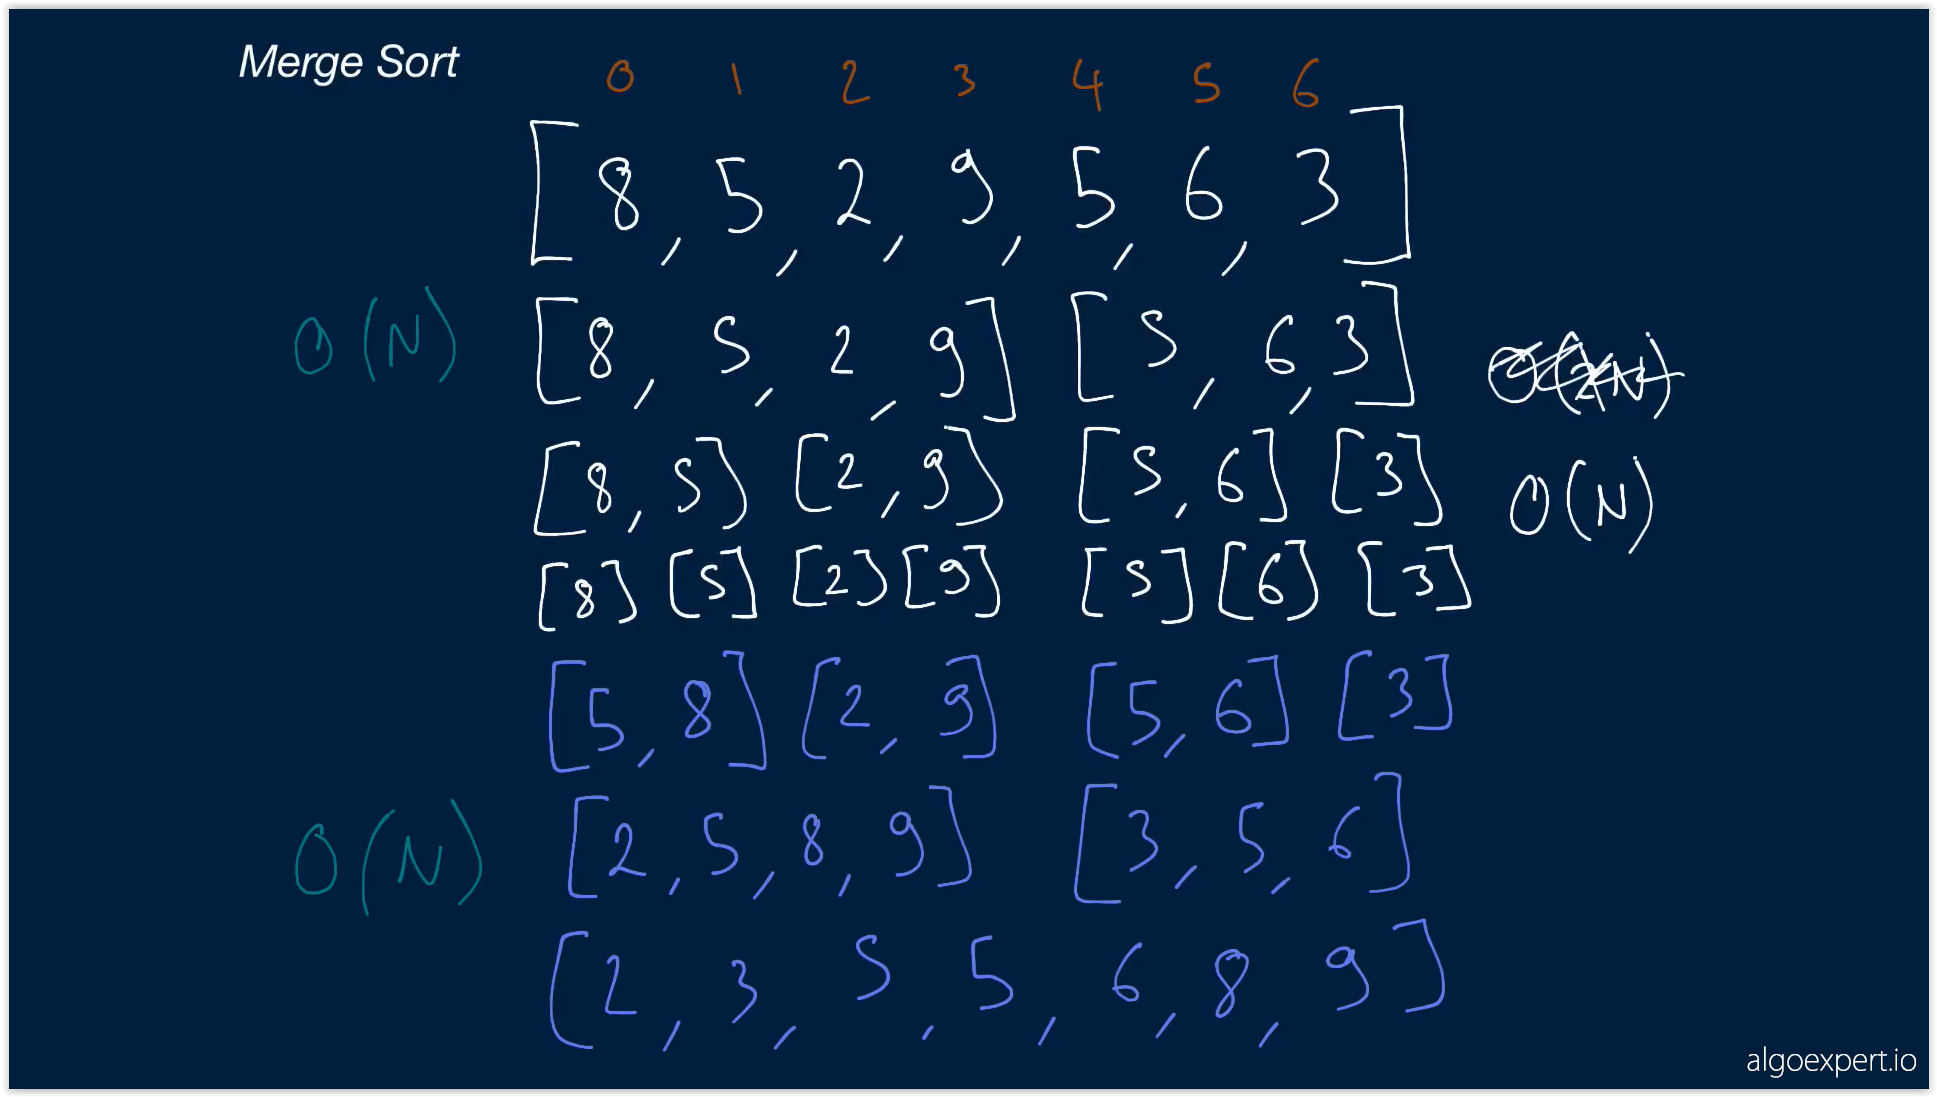 Merge Sort
0 1 2 3 4 5 6
[8, 5, 2, 9, 5, 6, 3]
O(N) [8, 5, 2, 9] [5, 6, 3] O(2N)
[8, 5] [2, 9] [5, 6] [3] O(N)
[8] [5] [2] [9] [5] [6] [3]
[5, 8] [2, 9] [5, 6] [3]
O(N) [2, 5, 8, 9] [3, 5, 6]
[2, 3, 5, 5, 6, 8, 9]
algoexpert.io